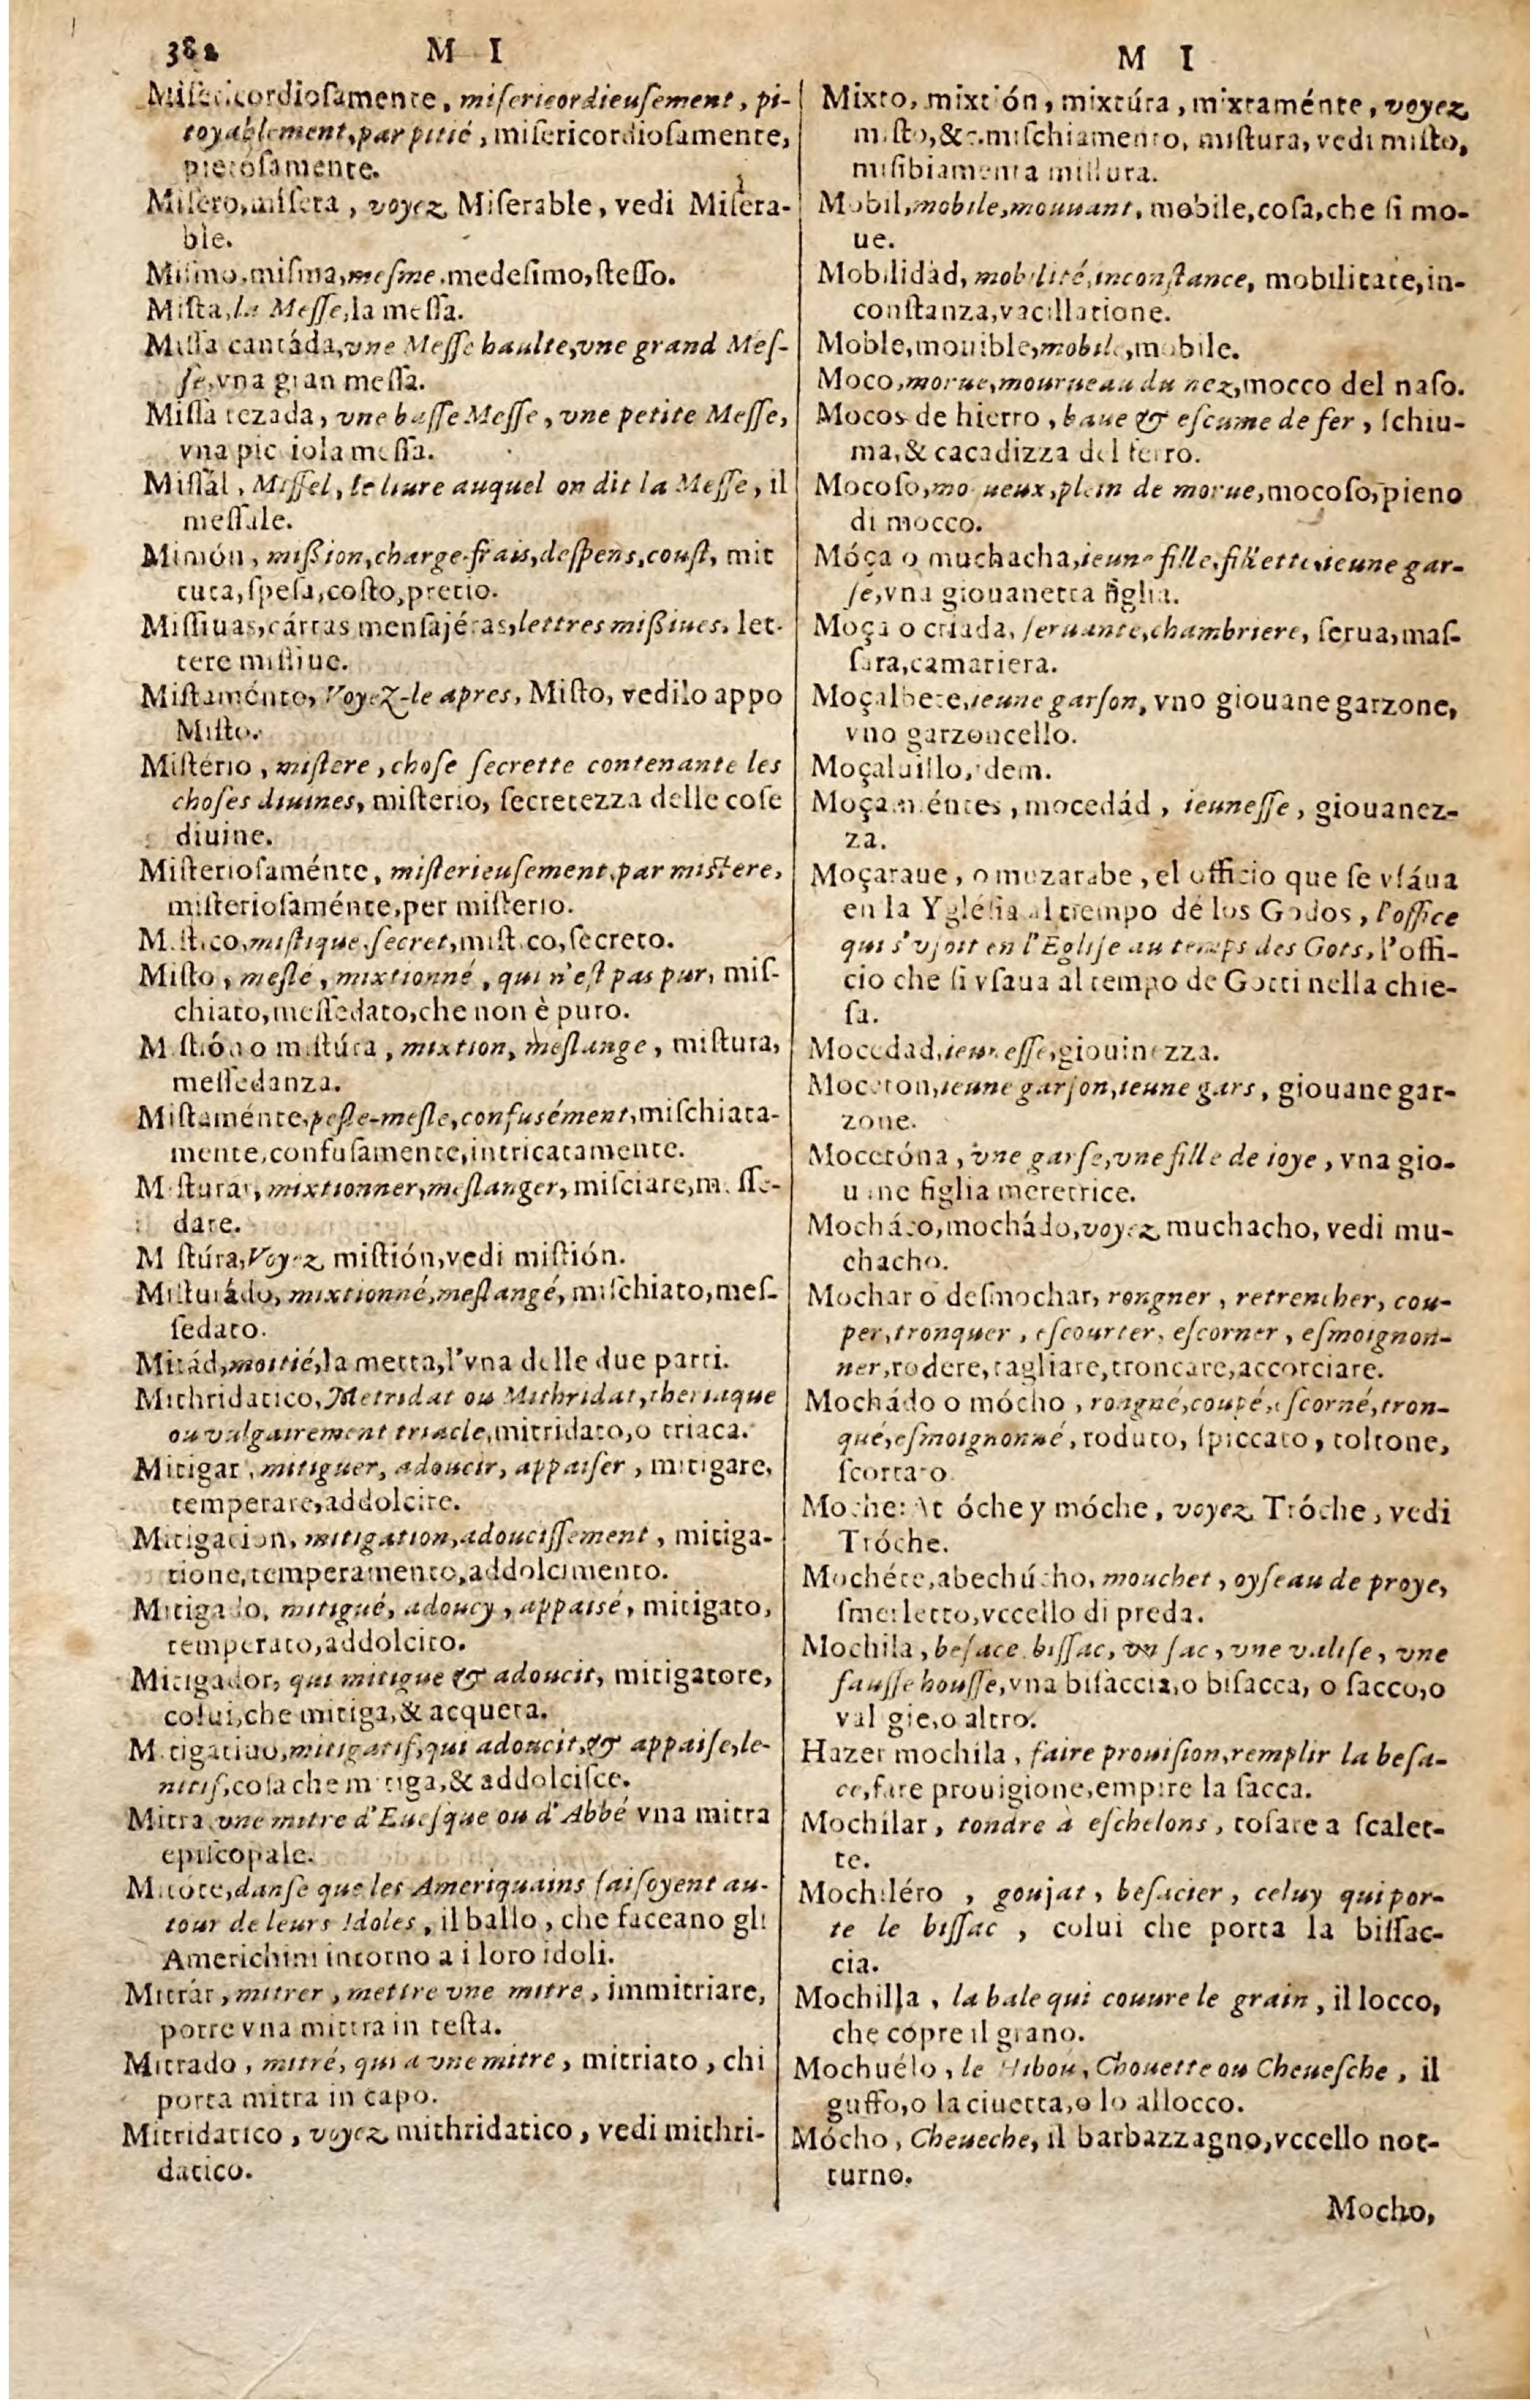 382
M I
Misericordiosamente, misericordieusement, pi-
toyablement, par pitié, misericordiosamente,
pietosamente.
Misero, misera, voyez Miserable, vedi Misera-
ble.
Mismo, misma, mesme, medesimo, stesso.
Missa, la Messe, la messa.
Missa cantáda, vne Messe haulte, vne grand Mes-
se, vna gran messa.
Missa rezada, vne basse Messe, vne petite Messe,
vna picciola messa.
Missál, Missel, le liure auquel on dit la Messe, il
messale.
mission, charge, frais, despens, coust, mit
tuta, spesa, costo, pretio.
Missiuas, cártas mensajéras, lettres missiues, let-
tere missiue.
Mistaménto, Voyez-le apres, Misto, vedilo appo
Misto.
Misterio, mistere, chose secrette contenante les
choses diuines, misterio, secretezza delle cose
diuine.
Misteriosaménte, misterieusement, par mistere,
misteriosaménte, per misterio.
Mistico, mistique, secret, mistico, secreto.
Misto, mesle, mixtionné, qui n'est pas pur, mis-
chiato, messedato, che non è puro.
Mistión o mistúra, mixtion, meslange, mistura,
messedanza.
Mistaménte, pesle-mesle, confusément, mischiata-
mente, confusamente, intricatamente.
Misturar, mixtionner, meslanger, misciare, messe-
dare.
Mistúra, Voyez mistión, vedi mistión.
Misturádo, mixtionné, meslangé, mischiato, mes-
sedato.
Mitád, moitié, la metta, l'vna delle due parti.
Mithridatico, Metridat ou Mithridat, theriaque
ou vulgairement triacle, mitridato, o triaca.
Mitigar, mitiguer, adoucir, appaiser, mitigare,
temperare, addolcire.
Mitigacion, mitigation, adoucissement, mitiga-
tione, temperamento, addolcimento.
Mitigado, mitigué, adoucy, appaisé, mitigato,
temperato, addolcito.
Mitigador, qui mitigue & adoucit, mitigatore,
colui, che mitiga, & acqueta.
Mitigatiuo, mitigatif, qui adoucit, & appaise, le-
nitif, cosa che mitiga, & addolcisce.
Mitra, vne mitre d'Euesque ou d'Abbé vna mitra
episcopale.
Mitote, danse que les Ameriquains faisoyent au-
tour de leurs Idoles, il ballo, che faceano gli
Americhini intorno a i loro idoli.
Mitrár, mitrer, mettre vne mitre, immitriare,
porre vna mittra in testa.
Mitrado, mitré, qui a vne mitre, mitriato, chi
porta mitra in capo.
Mitridatico, voyez mithridatico, vedi mithri-
datico.
M I
Mixto, mixtión, mixtúra, mixtaménte, voyez
misto, &c. mischiamento, mistura, vedi misto,
misibiamenta mistura.
Mobil, mobile, mouuant, mobile, cosa, che si mo-
ue.
Mobilidàd, mobilité, inconstance, mobilitate, in-
constanza, vacillatione.
Moble, mouible, mobile, mobile.
Moco, morue, mourueau du nez, mocco del naso.
Mocos de hierro, baue & escume de fer, schiu-
ma, & cacadizza del ferro.
Mocoso, morueux, plein de morue, mocoso, pieno
di mocco.
Móça o muchacha, ieune fille, fillette, ieune gar-
se, vna giouanetta figlia.
Moça o criada, seruante, chambriere, serua, mas-
sara, camariera.
Moçalbete, ieune garson, vno giouane garzone,
vno garzoncello.
Moçaluillo, idem.
Moçaméntes, mocedád, ieunesse, giouanez-
za.
Moçaraue, o muzarabe, el officio que se vsáua
en la Yglésia al tiempo de los Godos, l'office
qui s'vsoit en l'Eglise au temps des Gots, l'offi-
cio che si vsaua al tempo de Gotti nella chie-
sa.
Mocedad, ieunesse, giouinezza.
Moceton, ieune garson, ieune gars, giouane gar-
zone.
Mocetóna, vne garse, vne fille de ioye, vna gio-
uane figlia meretrice.
Mocháco, mochádo, voyez muchacho, vedi mu-
chacho.
Mochar o desmochar, rongner, retrencher, cou-
per, tronquer, escourter, escorner, esmoignon-
ner, rodere, tagliare, troncare, accorciare.
Mochádo o mócho, rongné, coupé, escorné, tron-
qué, esmoignonné, roduto, spiccato, toltone,
scortato.
Moche: At óche y móche, voyez Tróche, vedi
Tróche.
Mochéte, abechúcho, mouchet, oyseau de proye,
smerletto, vccello di preda.
Mochila, besace, bissac, vn sac, vne valise, vne
fausse housse, vna bisaccia, o bisacca, o sacco, o
valgie, o altro.
Hazer mochila, faire prouision, remplir la besa-
ce, fare prouigione, empire la sacca.
Mochilar, tondre à eschelons, tosare a scalet-
te.
Mochiléro, goujat, besacier, celuy qui por-
te le bissac, colui che porta la bissac-
cia.
Mochilla, la bale qui couure le grain, il locco,
che copre il grano.
Mochuélo, le Hibou, Chouette ou Cheuesche, il
guffo, o la ciuetta, o lo allocco.
Mócho, Cheueche, il barbazzagno, vccello not-
turno.
Mocho,